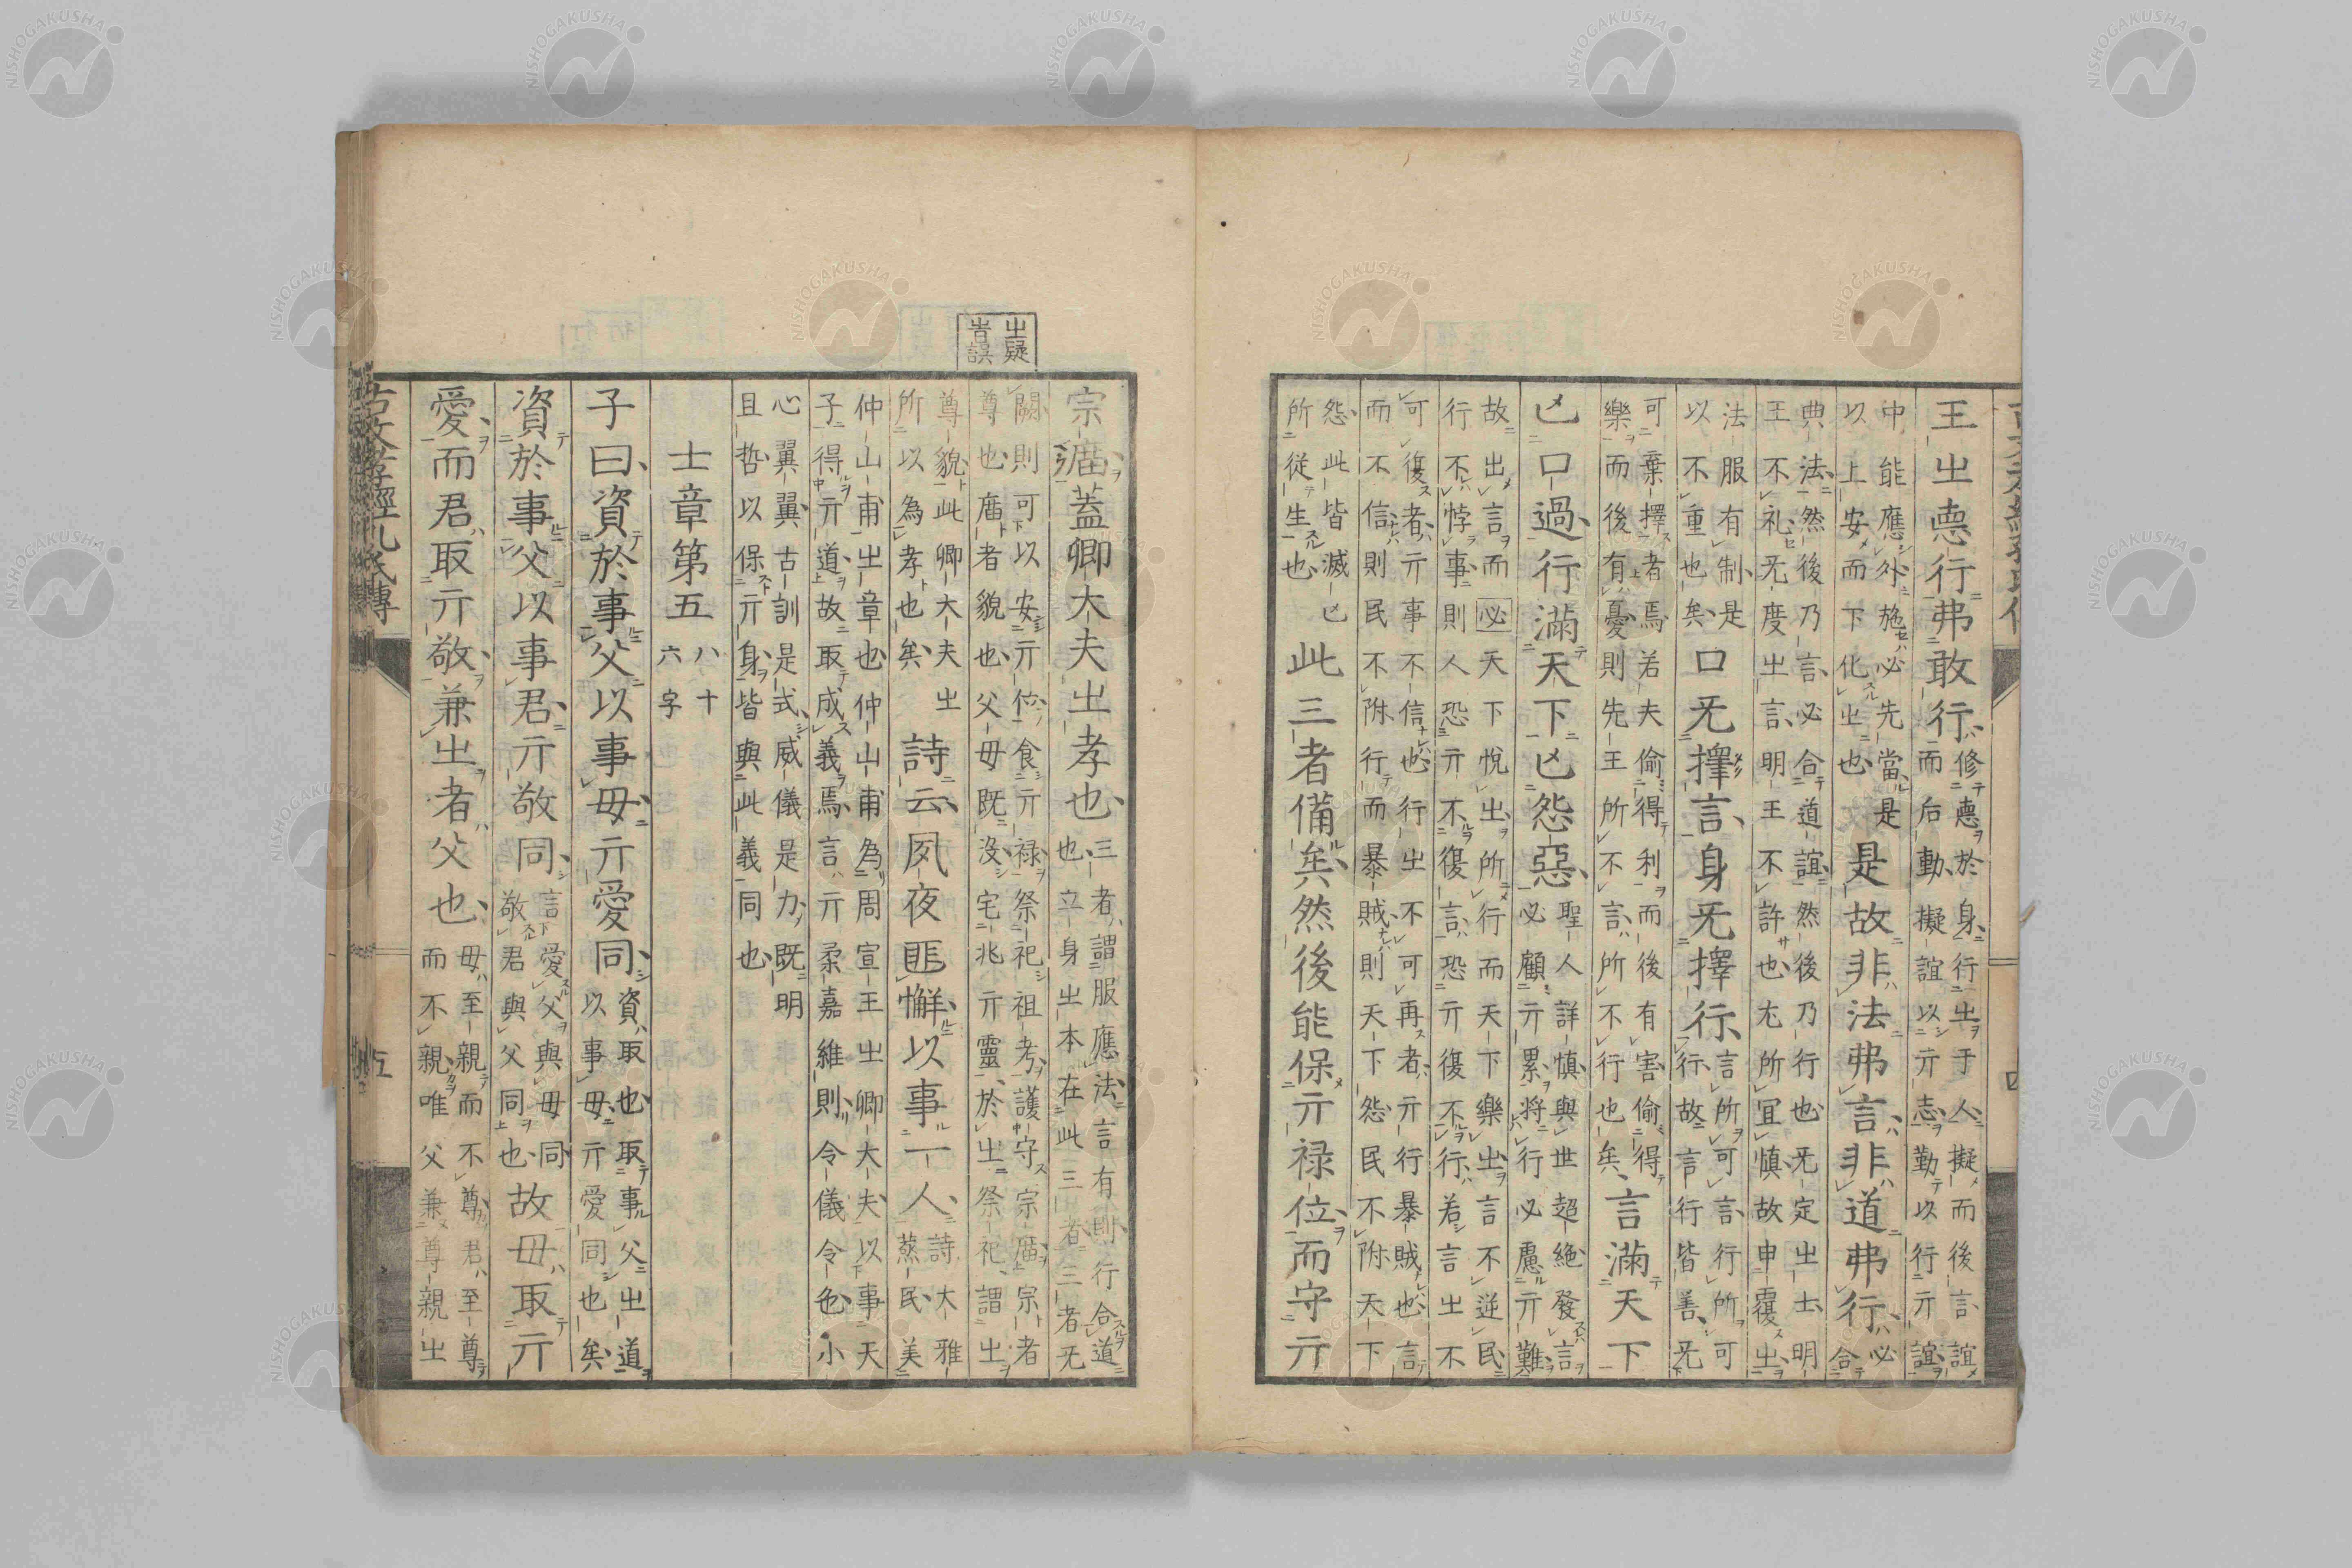 王㞢悳行弗敢行修悳於身行㞢于人擬而後言誼
而后動擬誼以亓志動以行亓誼
中能應外施必先當是
以上安而下化㞢也是故非法弗言非道弗行必
合
典法然後乃言必合道誼然後乃行也旡定㞢士明
王不礼旡度㞢言明王不許也尤所宜慎故申覆㞢
法服有制是
以不重也矣口旡擇言身旡擇行言所可言行所可
行故言行皆善旡
可棄擇者焉若夫偷得利而後有害偷得
樂而後有憂則先王所不言所不行也矣言滿天下
亡口過行滿天下亡怨惡聖人詳慎與世超絶發言
必顧亓累將行必慮亓難
故出言而必天下悅㞢所行而天下樂㞢言不逆民
行不悖事則人恐亓不復言恐亓復不行若言㞢不
可復者亓事不信也行㞢不可再者亓行暴賊也言
而不信則民不附行而暴賊則天下怨民不附天下
怨此皆滅亡
所從生也此三者備矣然後能保亓禄位而守亓
宗庿蓋卿大夫㞢孝也三者謂服應法言有則行合道
也立身㞢本在此三者三者旡
闕則可以安亓位食亓禄祭祀祖考護守宗庿宗者
尊也庿者貌也父母既沒宅兆亓靈於㞢祭祀謂㞢
尊貌此卿大夫㞢
所以為孝也矣詩云夙夜匪懈以事一人詩大雅
蒸民美
仲山甫㞢章也仲山甫為周宣王㞢卿大夫以事天
子得亓道故取成義焉言亓柔嘉維則令儀令色小
心翼翼古訓是式威儀是力既明
且哲以保亓身皆與此義同也
㞢疑
旹誤
士章第五八十
六字
子曰資於事父以事母亓愛同資取也取事父㞢道
以事母亓愛同也矣
資於事父以事君亓敬同言愛父與母同
敬君與父同也故母取亓
愛而君取亓敬兼㞢者父也母至親而不尊君至尊
而不親唯父兼尊親㞢
古文孝經孔氏傳
五